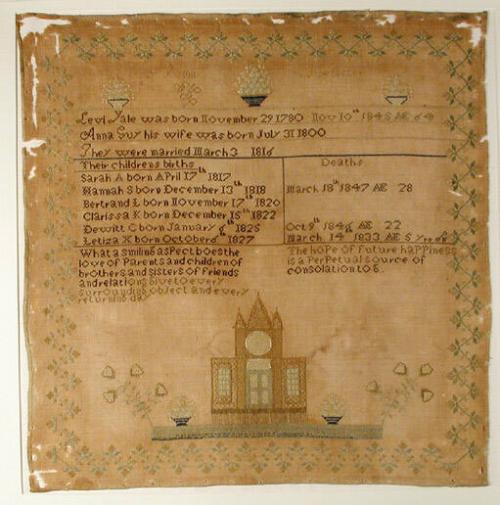 Levi Yale was born November 29 1780 Nov 10th 1845 AE 64
Anna Guy his wife was born July 31 1800
They were married March 3 1816
Their childrens births Deaths
Sarah A born April 17th 1817
Hannah S born December 13th 1818 March 18th 1847 AE 28
Bertrand L born November 17th 1820
Clarissa K born December 15th 1822
Dewitt C born January 1825 Oct 9th AE 22
Letiza X born October 1827 March 14 1833 AE 5 years
What a smiling aspect does the The hope of future happiness
love of Parents and children of is a Perpetual source of
brothers and sisters of friends consolation to
and relations give to every
surrounding object and every
returning day